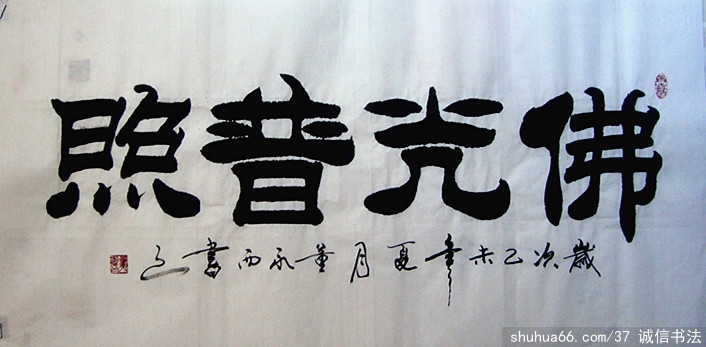 佛光普照
歲次乙未年夏月董永西書
shuhua66.com/37 诚信书法